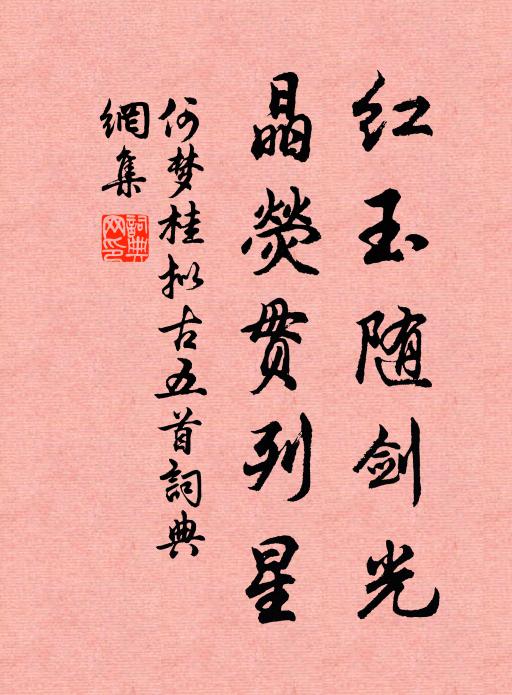 红玉随剑光
晶荧贯列星
何梦桂拟古五首詞典
網集
詞典網印